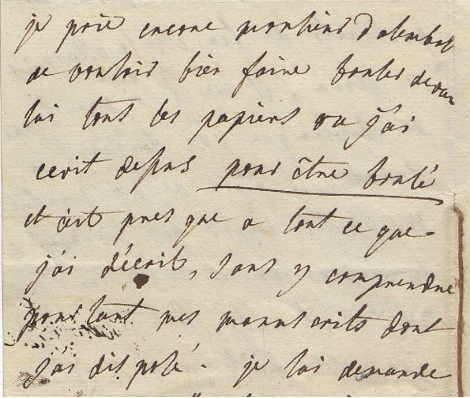 je prie encore monsieur d'alembert
de vouloir bien faire bruler devan
lui tous les papiers ou j'ai
ecrit dessus pour être brulé
et c'est presque a tout ce que
j'ai d'écrit, sans y comprendre
pourtant mes manuscrits dont
j'ai disposé. je lui demande